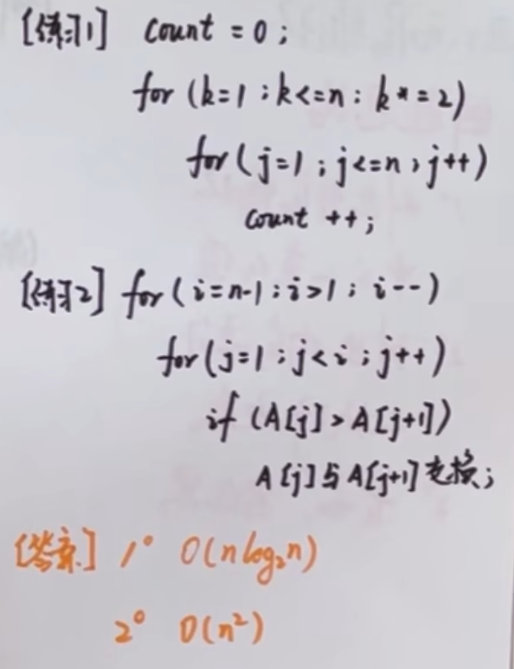 [练习1] count = 0;
for (k=1; k<=n; k*=2)
for (j=1; j<=n; j++)
count ++;
[练习2] for (i=n-1; i>1; i--)
for (j=1; j<i; j++)
if (A[j] > A[j+1])
A[j]与A[j+1]交换;
[答案] 1° O(nlog₂n)
2° O(n²)